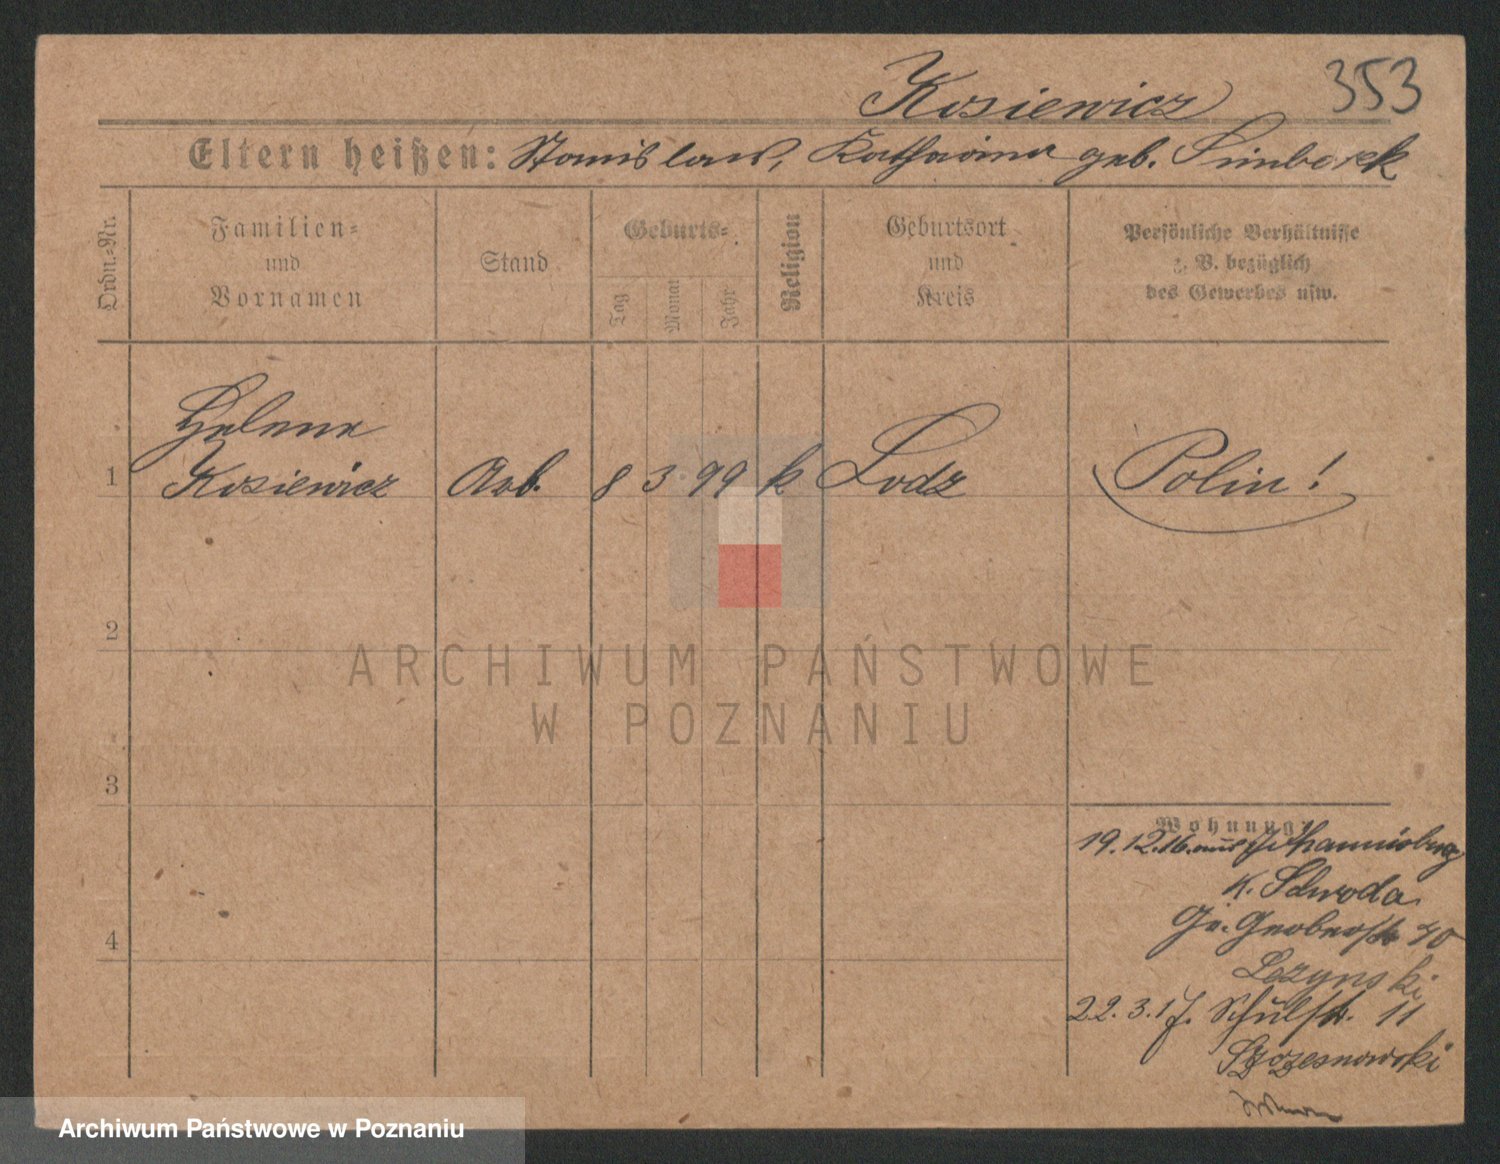 Kosiewicz 353
Eltern heißen: Stanislaus, Katharina geb.
Ordn.-Nr.
Familien-
und
Vornamen
Stand
Geburts-
Tag
Monat
Jahr
Religion
Geburtsort
und
Kreis
Persönliche Verhältnisse
z. B. bezüglich
des Gewerbes usw.
Helene
1 Kosiewicz Arb. 8 3 99 k Lodz Polin!
2
ARCHIWUM PAŃSTWOWE
W POZNANIU
3
Wohnung:
19.12.16. aus Johannisburg
K. Schroda
Gr. Gerberstr. 40
Lezynski
22.3.17. Schulstr. 11
Szczesnowski
4
Archiwum Państwowe w Poznaniu